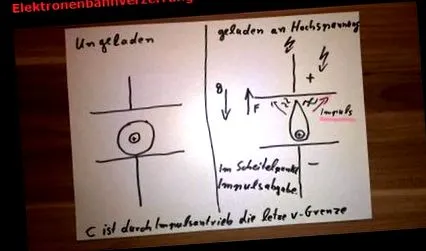 Elektronenbahnverzerrung
Ungeladen
geladen an Hochspannung
+
g
F
Impuls
Im Scheitelpunkt
Impulsabgabe
-
+
+
C ist durch Impulsantrieb die letze v-Grenze